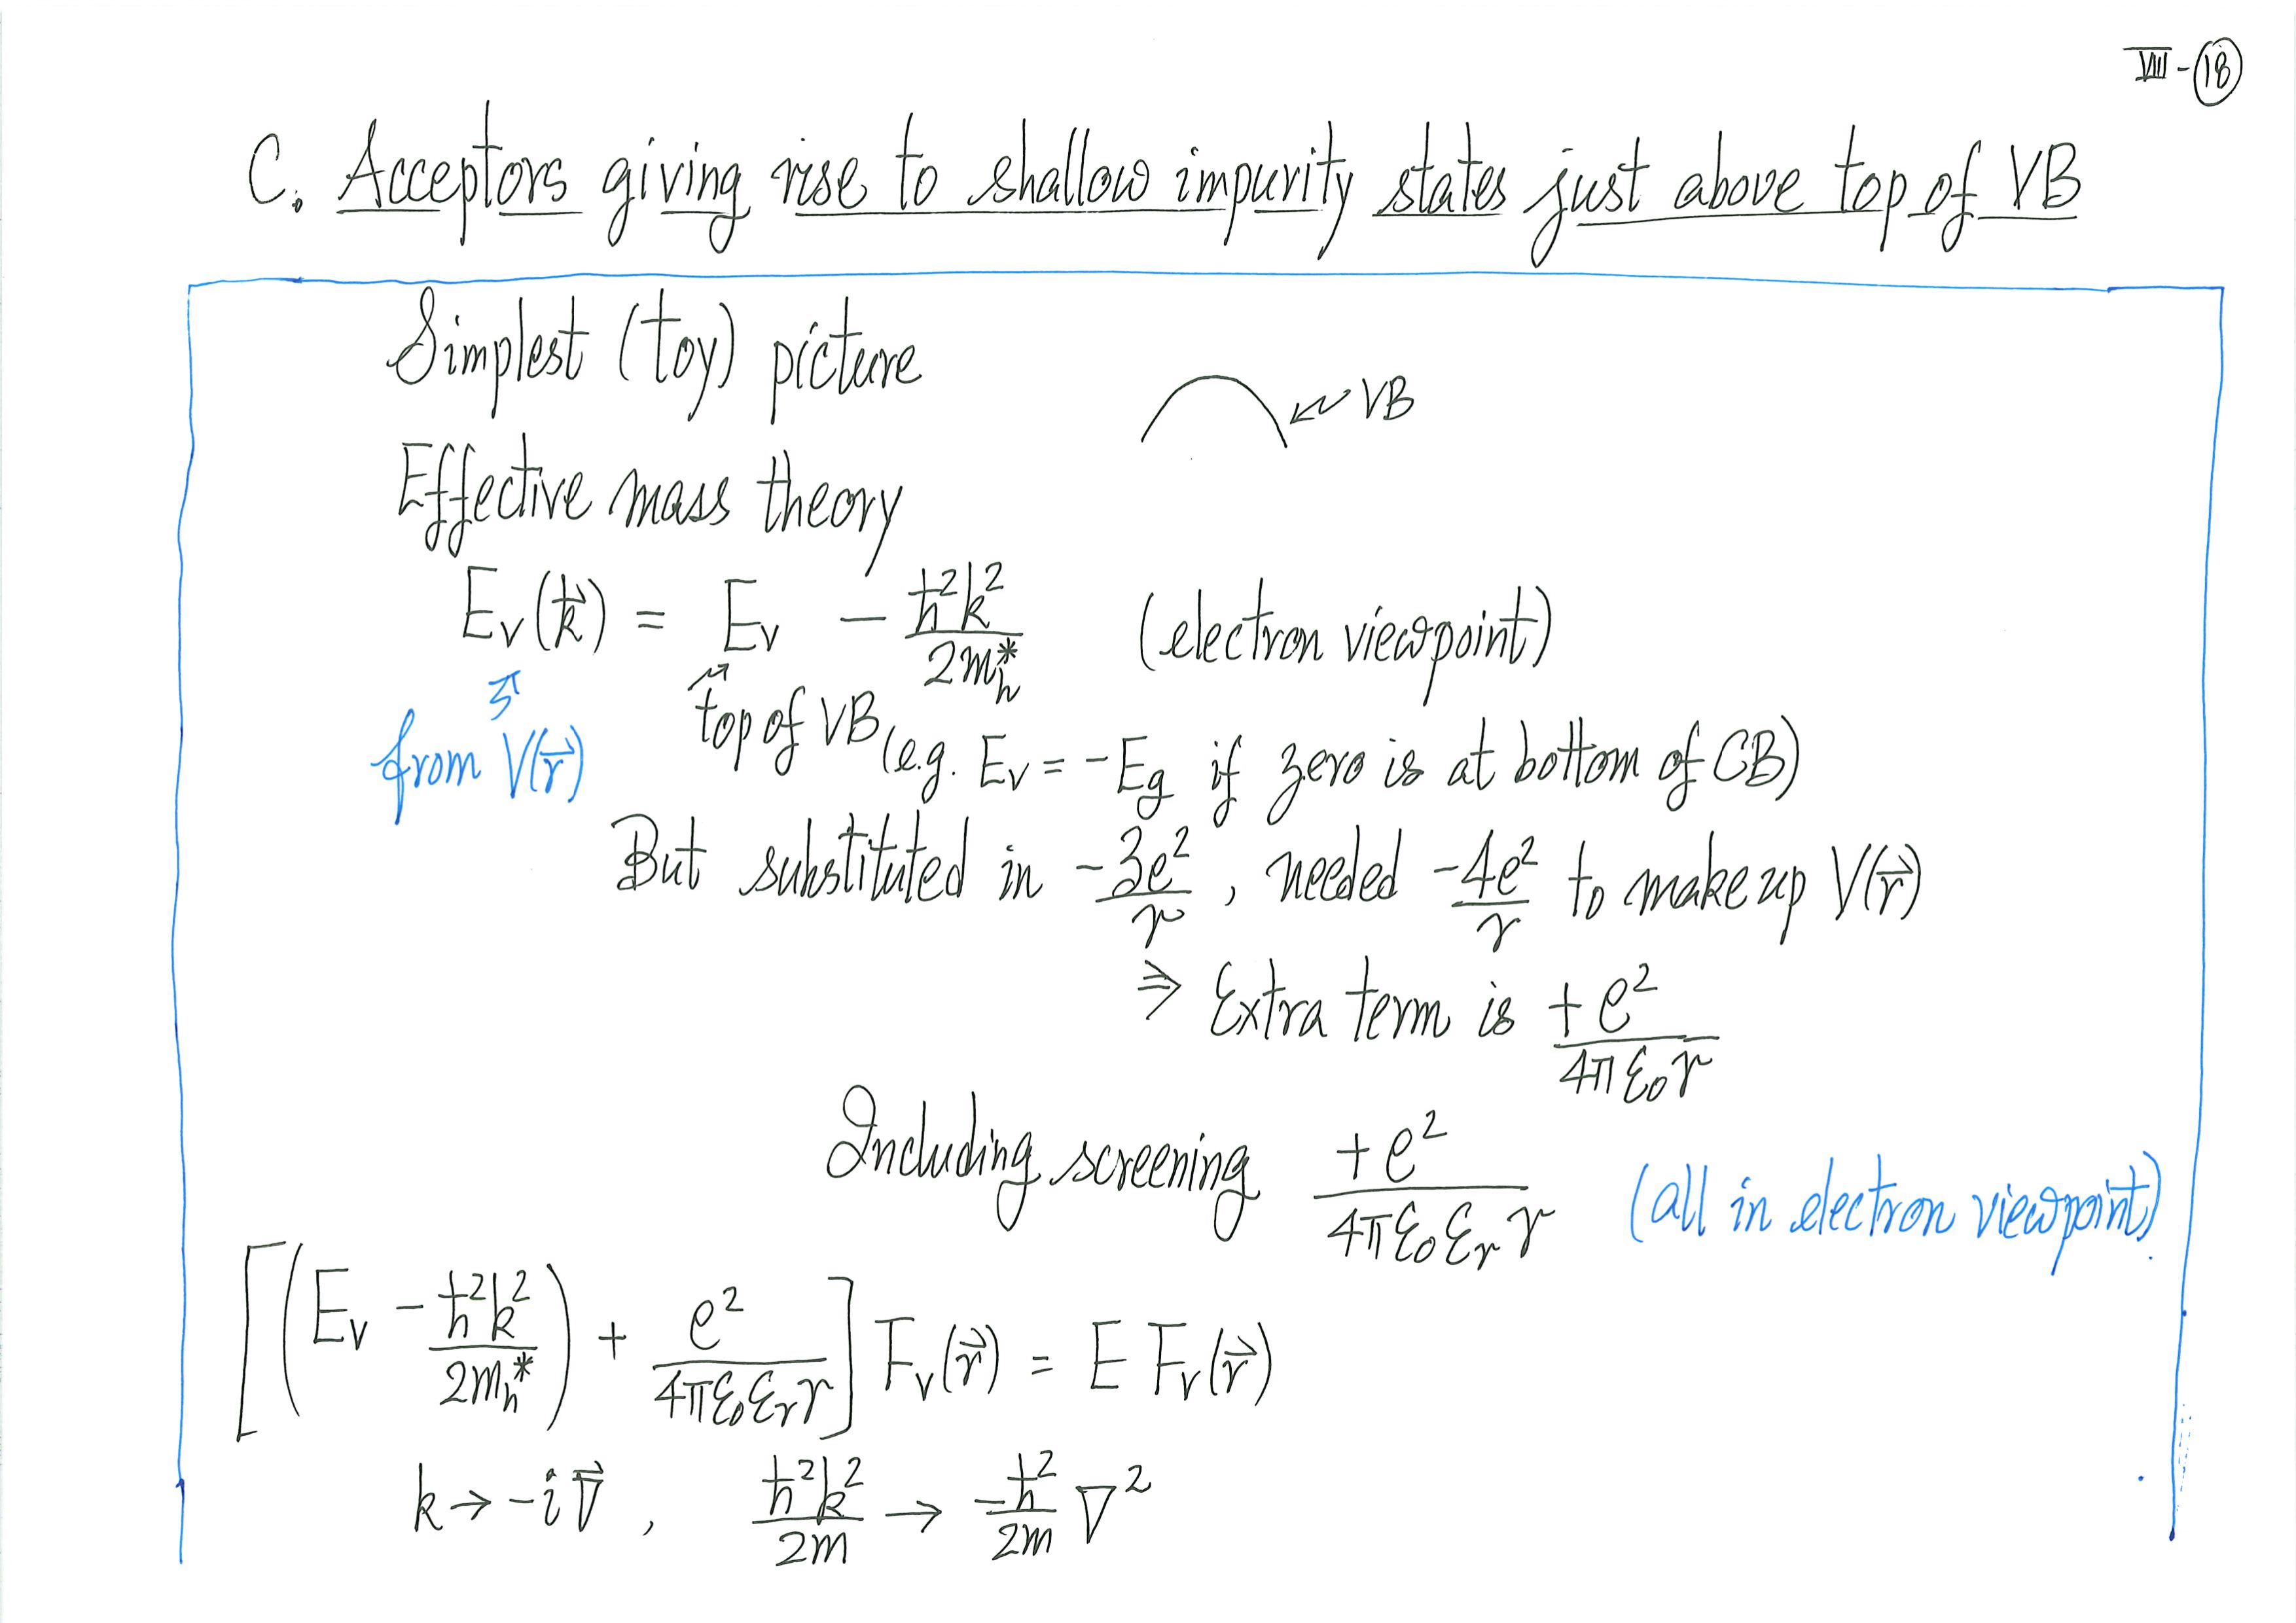 VIII-(18)
C. Acceptors giving rise to shallow impurity states just above top of VB
Simplest (toy) picture
VB
Effective mass theory
E_v(k⃗) = E_v − ħ²k²/2m_h* (electron viewpoint)
from V(r⃗) top of VB (e.g. E_v = −E_g if zero is at bottom of CB)
But substituted in −3e²/r, needed −4e²/r to make up V(r⃗)
⇒ Extra term is +e²/4πε₀r
Including screening +e²/4πε₀ε_r r (all in electron viewpoint).
[(E_v − ħ²k²/2m_h*) + e²/4πε₀ε_r r] F_v(r⃗) = E F_v(r⃗)
k → −i∇⃗, ħ²k²/2m → −ħ²/2m ∇²